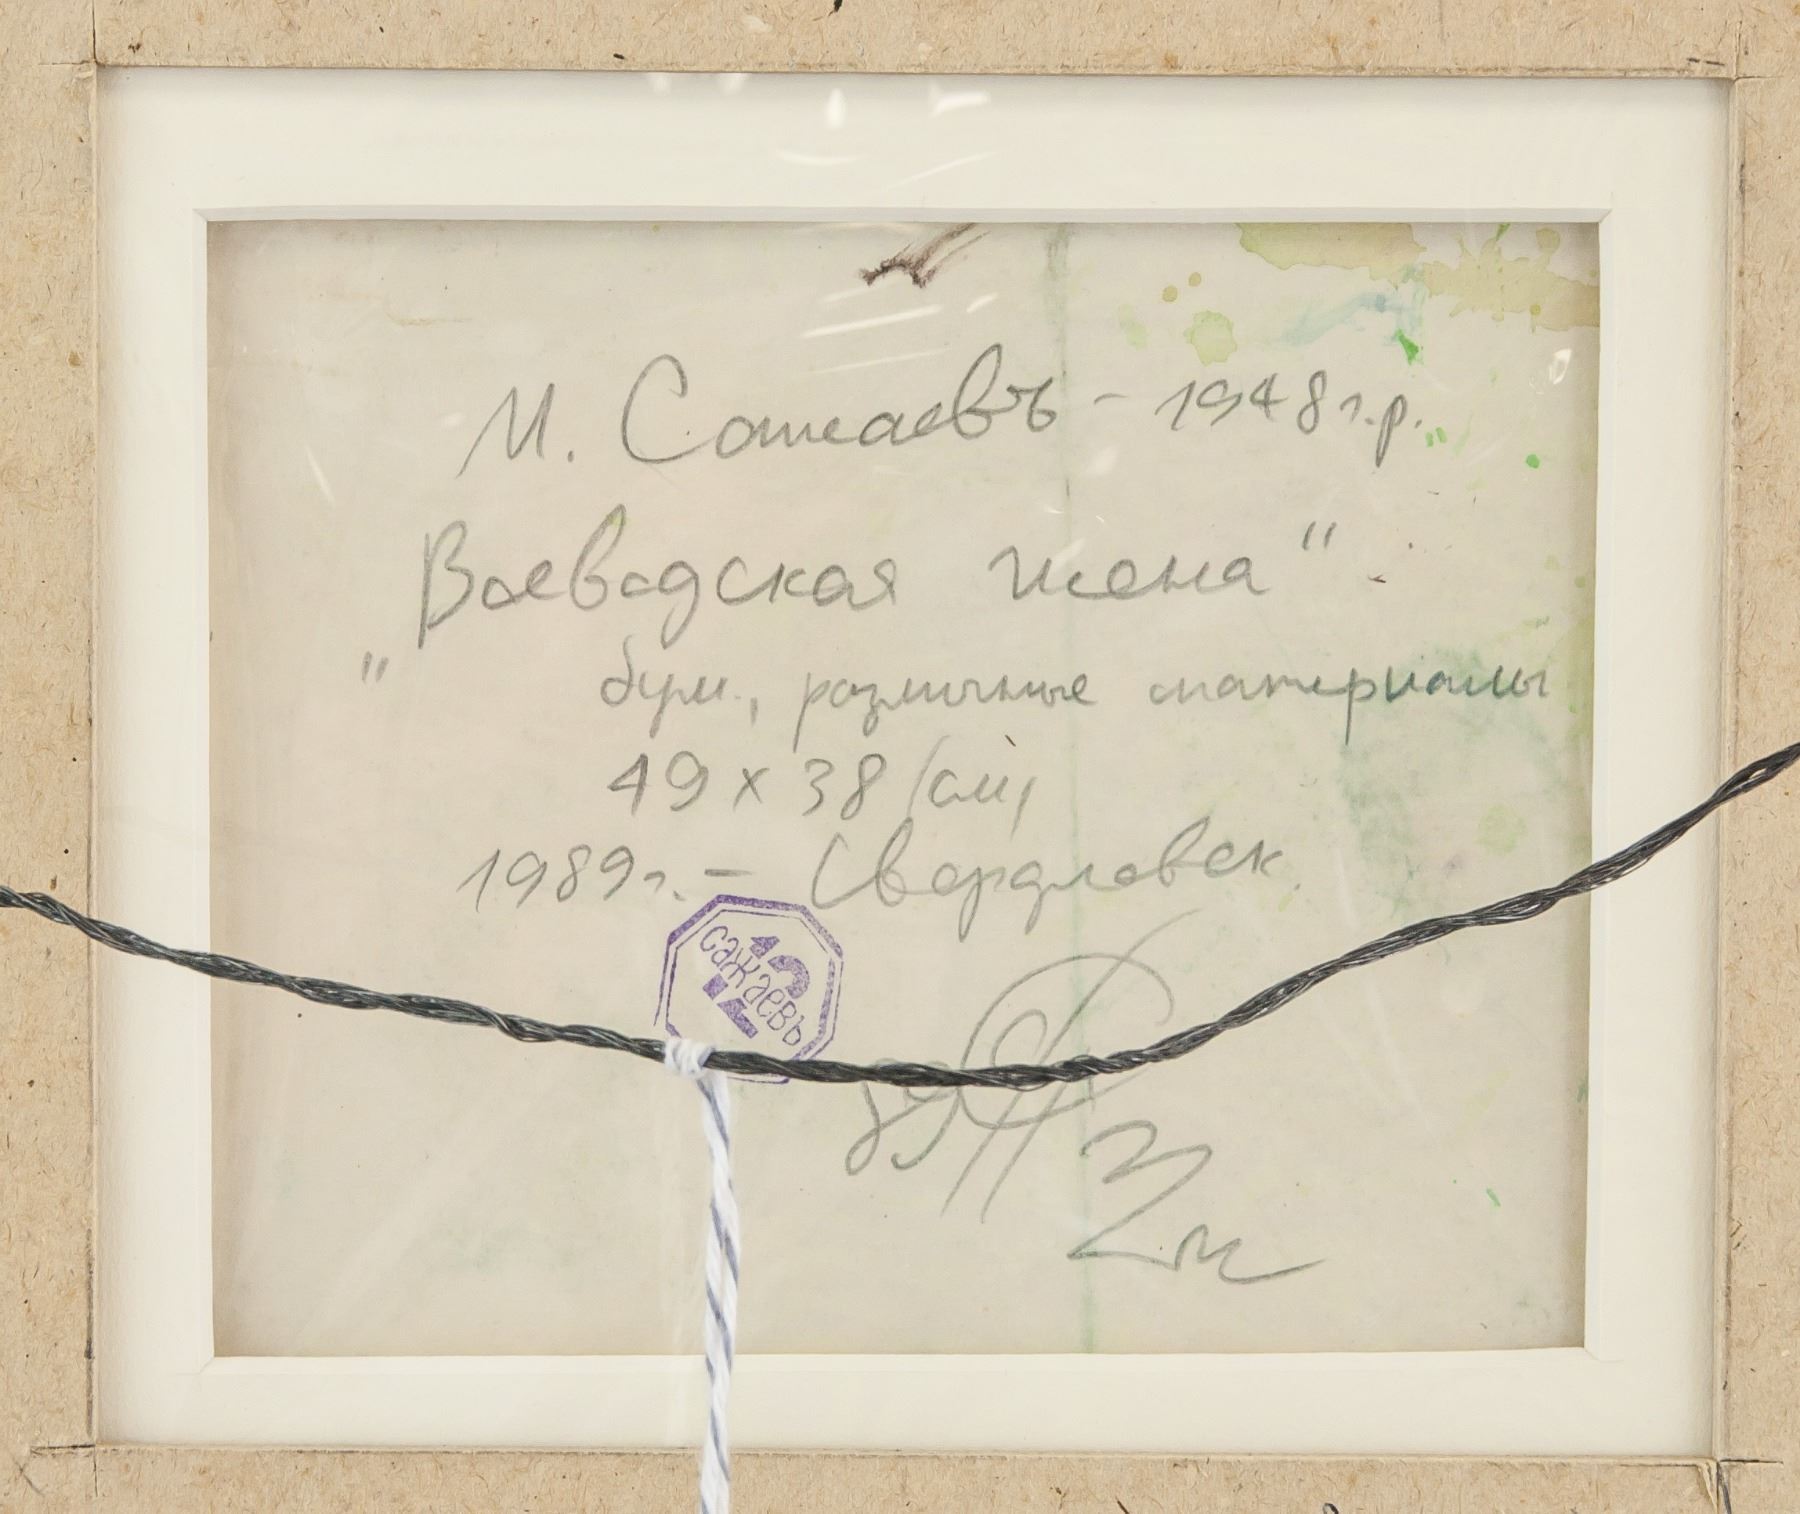 М. Сажаевъ - 1948 г.р.
"Воеводская жена"
бум., различные материалы
49 x 38 /см/
1989г. - Свердловск.
12
сажаевъ